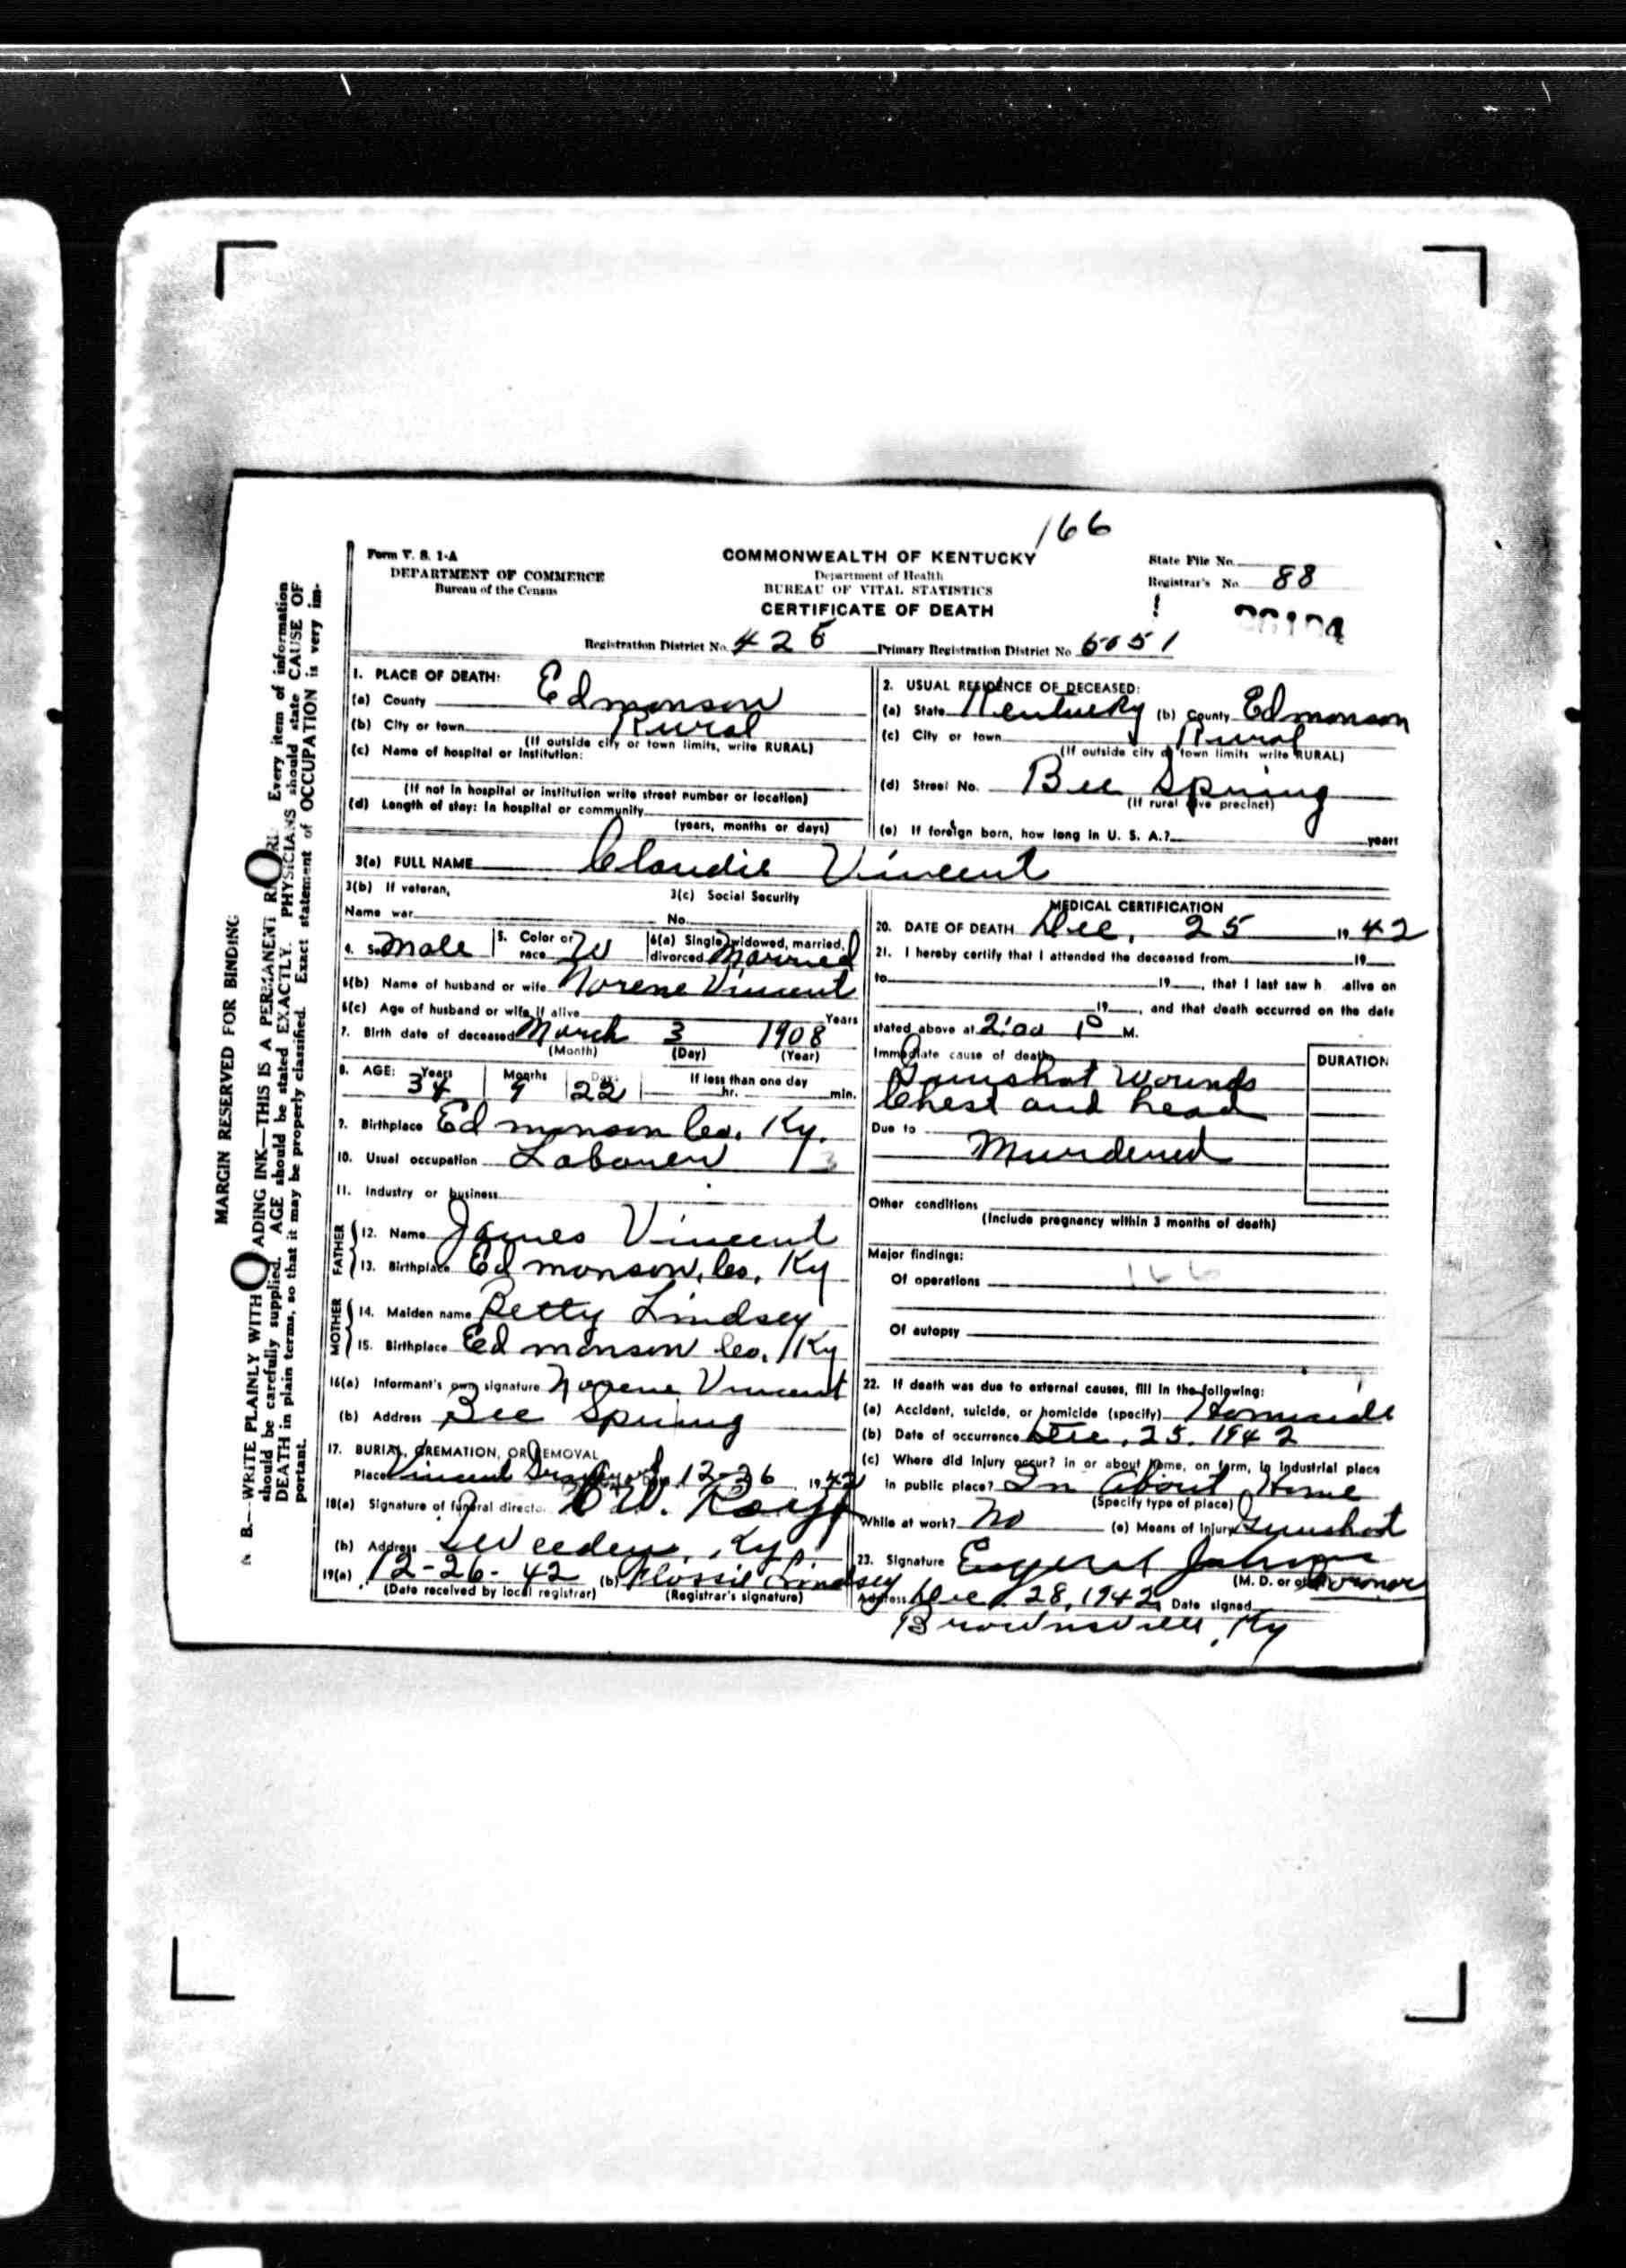 166
Form V. S. 1-A
DEPARTMENT OF COMMERCE
Bureau of the Census
COMMONWEALTH OF KENTUCKY
Department of Health
BUREAU OF VITAL STATISTICS
CERTIFICATE OF DEATH
State File No.
Registrar's No. 88
Registration District No. 425 Primary Registration District No 5051
MARGIN RESERVED FOR BINDING
N. B.—WRITE PLAINLY WITH ADING INK—THIS IS A PERMANENT Every item of information
should be carefully supplied. AGE should be stated EXACTLY. PHYSICIANS should state CAUSE OF
DEATH in plain terms, so that it may be properly classified. Exact statement of OCCUPATION is very im-
portant.
1. PLACE OF DEATH:
(a) County Edmonson
(b) City or town Rural
(If outside city or town limits, write RURAL)
(c) Name of hospital or institution:
(If not in hospital or institution write street number or location)
(d) Length of stay: In hospital or community
(years, months or days)
2. USUAL RESIDENCE OF DECEASED:
(a) State Kentucky (b) County Edmonson
(c) City or town Rural
(If outside city or town limits write RURAL)
(d) Street No. Bee Spring
(If rural give precinct)
(e) If foreign born, how long in U. S. A.? years
3(a) FULL NAME Claudie Vincent
3(b) If veteran,
Name war
3(c) Social Security
No.
4. Sex Male 5. Color or race W 6(a) Single, widowed, married, divorced Married
6(b) Name of husband or wife Norene Vincent
6(c) Age of husband or wife if alive Years
7. Birth date of deceased March 3 1908
(Month) (Day) (Year)
8. AGE: Years 34 Months 9 Days 22 If less than one day hr. min.
9. Birthplace Edmonson Co. Ky.
10. Usual occupation Laborer
11. Industry or business
FATHER
12. Name James Vincent
13. Birthplace Edmonson, Co, Ky
MOTHER
14. Maiden name Betty Lindsey
15. Birthplace Edmonson Co, Ky
16(a) Informant's own signature Norene Vincent
(b) Address Bee Spring
17. BURIAL, CREMATION, OR REMOVAL
Place Vincent Graveyard 12-26, 1942
18(a) Signature of funeral director
(b) Address Sweeden, Ky
19(a) 12-26-42 (b) Flossie Lindsey
(Date received by local registrar) (Registrar's signature)
MEDICAL CERTIFICATION
20. DATE OF DEATH Dec, 25 1942
21. I hereby certify that I attended the deceased from 19
to 19, that I last saw h alive on
19, and that death occurred on the date
stated above at 2:00 P M.
Immediate cause of death DURATION
Gunshot Wounds
Chest and head
Due to
Murdered
Other conditions
(Include pregnancy within 3 months of death)
Major findings:
Of operations 166
Of autopsy
22. If death was due to external causes, fill in the following:
(a) Accident, suicide, or homicide (specify) Homicide
(b) Date of occurrence Dec. 25. 1942
(c) Where did injury occur? in or about home, on farm, in industrial place
in public place? In About Home
(Specify type of place)
While at work? No (e) Means of Injury Gunshot
23. Signature
(M. D. or other) Coroner
Address Dec. 28, 1942 Date signed
Brownsville, Ky